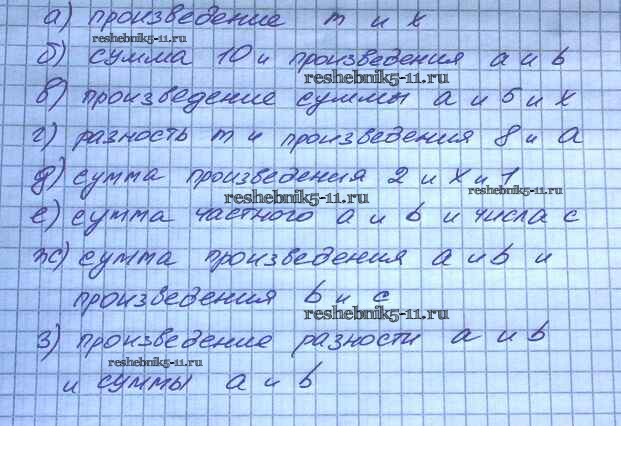 а) произведение m и x
reshebnik5-11.ru
б) сумма 10 и произведения a и b
reshebnik5-11.ru
в) произведение суммы a и 5 и x
г) разность m и произведения 8 и a
д) сумма произведения 2 и x и 1
reshebnik5-11.ru
reshebnik5-11.ru
е) сумма частного a и b и числа c
ж) сумма произведения a и b и
произведения b и c
reshebnik5-11.ru
з) произведение разности a и b
reshebnik5-11.ru
и суммы a и b